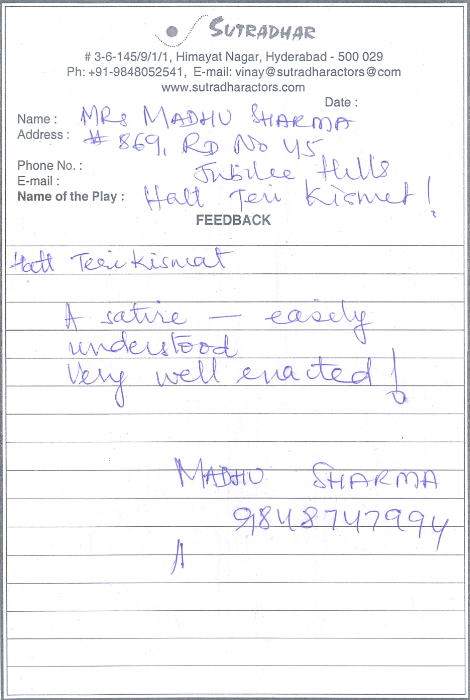 SUTRADHAR
# 3-6-145/9/1/1, Himayat Nagar, Hyderabad - 500 029
Ph: +91-9848052541, E-mail: vinay@sutradharactors@com
www.sutradharactors.com
Date :
Name : MRS MADHU SHARMA
Address : # 869, RD No 45
Phone No. : Jubilee Hills
E-mail :
Name of the Play : Hatt Teri Kismet!
FEEDBACK
Hatt Teri Kismat
A satire — easily
understood
Very well enacted!
MADHU SHARMA
9848747994